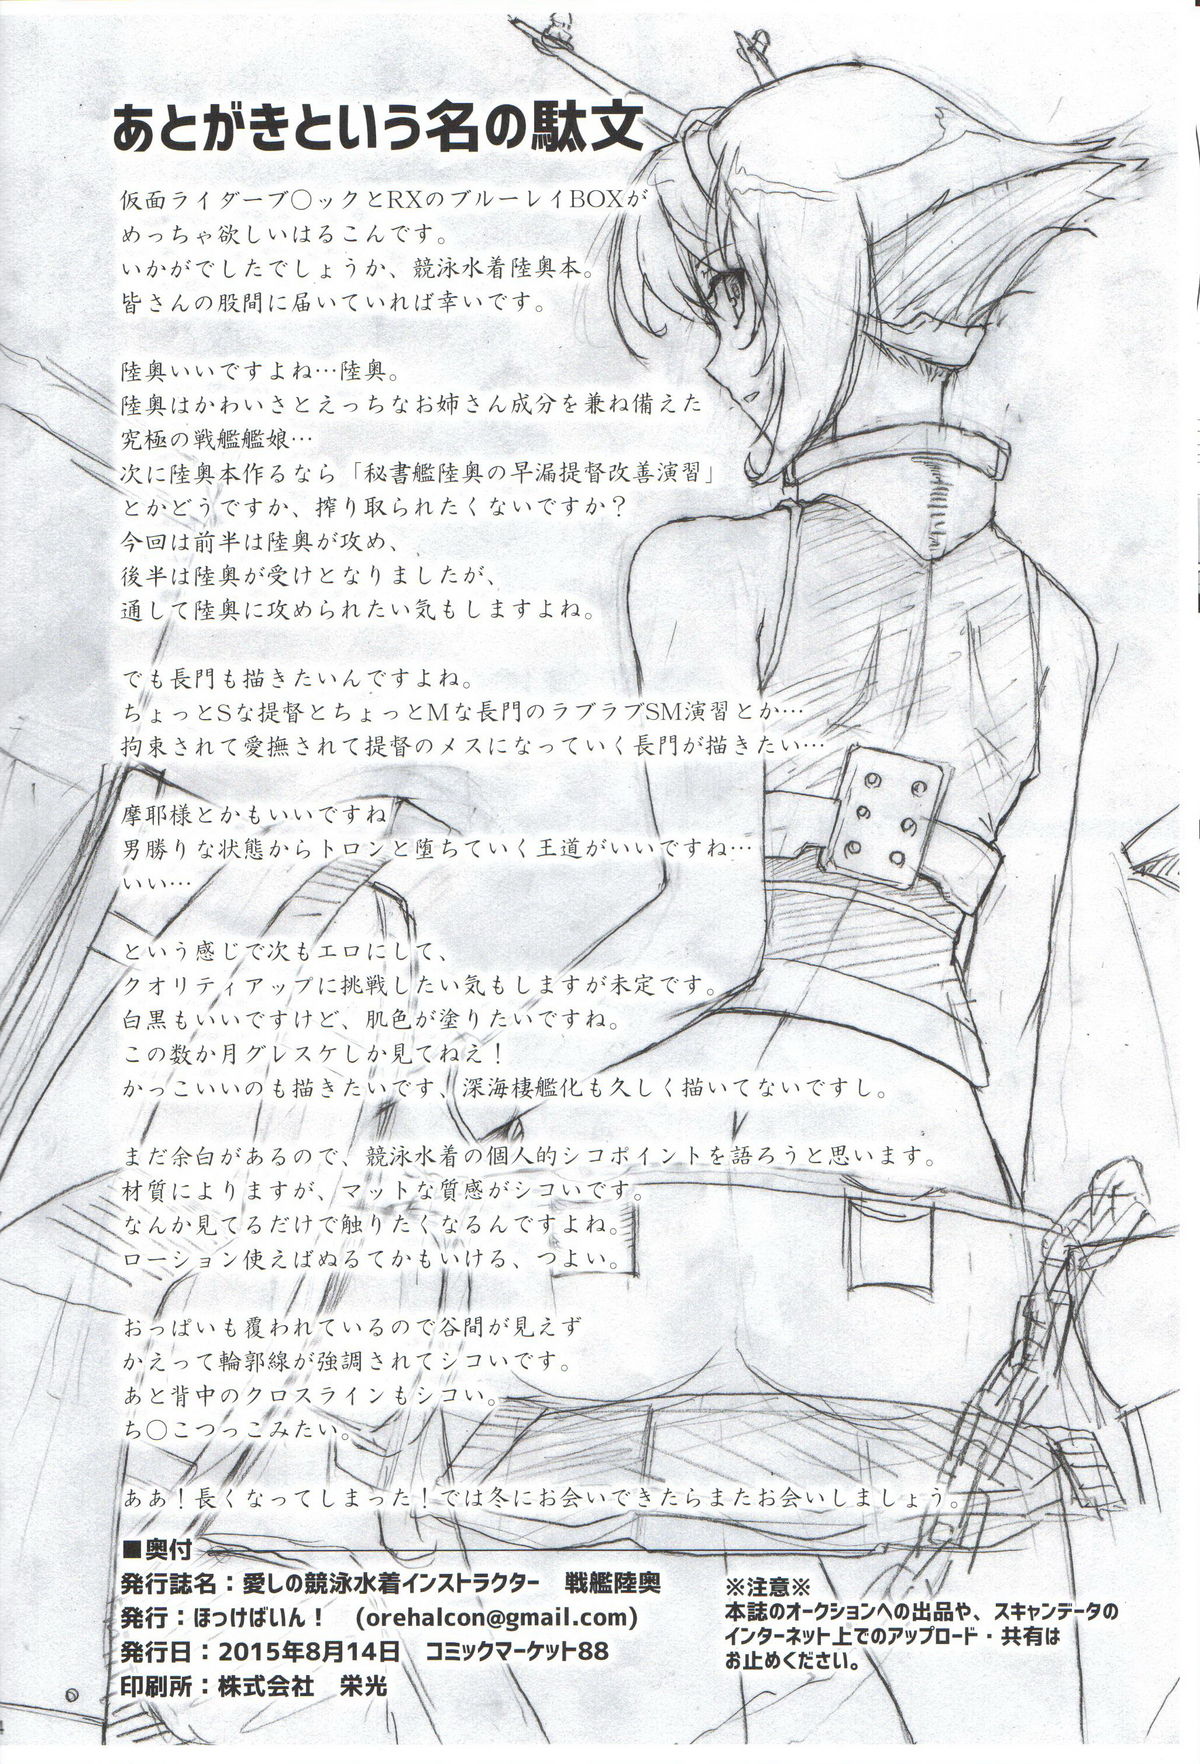 あとがきという名の駄文
仮面ライダーブ〇ックとRXのブルーレイBOXが
めっちゃ欲しいはるこんです。
いかがでしたでしょうか、競泳水着陸奥本。
皆さんの股間に届いていれば幸いです。
陸奥いいですよね…陸奥。
陸奥はかわいさとえっちなお姉さん成分を兼ね備えた
究極の戦艦艦娘…
次に陸奥本作るなら「秘書艦陸奥の早漏提督改善演習」
とかどうですか、搾り取られたくないですか?
今回は前半は陸奥が攻め、
後半は陸奥が受けとなりましたが、
通して陸奥に攻められたい気もしますよね。
でも長門も描きたいんですよね。
ちょっとSな提督とちょっとMな長門のラブラブSM演習とか…
拘束されて愛撫されて提督のメスになっていく長門が描きたい…
摩耶様とかもいいですね
男勝りな状態からトロンと堕ちていく王道がいいですね…
いい…
という感じで次もエロにして、
クオリティアップに挑戦したい気もしますが未定です。
白黒もいいですけど、肌色が塗りたいですね。
この数か月グレスケしか見てねえ!
かっこいいのも描きたいです、深海棲艦化も久しく描いてないですし。
まだ余白があるので、競泳水着の個人的シコポイントを語ろうと思います。
材質によりますが、マットな質感がシコいです。
なんか見てるだけで触りたくなるんですよね。
ローション使えばぬるてかもいける、つよい。
おっぱいも覆われているので谷間が見えず
かえって輪郭線が強調されてシコいです。
あと背中のクロスラインもシコい。
ち〇こつっこみたい。
ああ!長くなってしまった!では冬にお会いできたらまたお会いしましょう。
■奥付
発行誌名:愛しの競泳水着インストラクター 戦艦陸奥
発行:ほっけばいん! (orehalcon@gmail.com)
発行日:2015年8月14日 コミックマーケット88
印刷所:株式会社 栄光
※注意※
本誌のオークションへの出品や、スキャンデータの
インターネット上でのアップロード・共有は
お止めください。
4